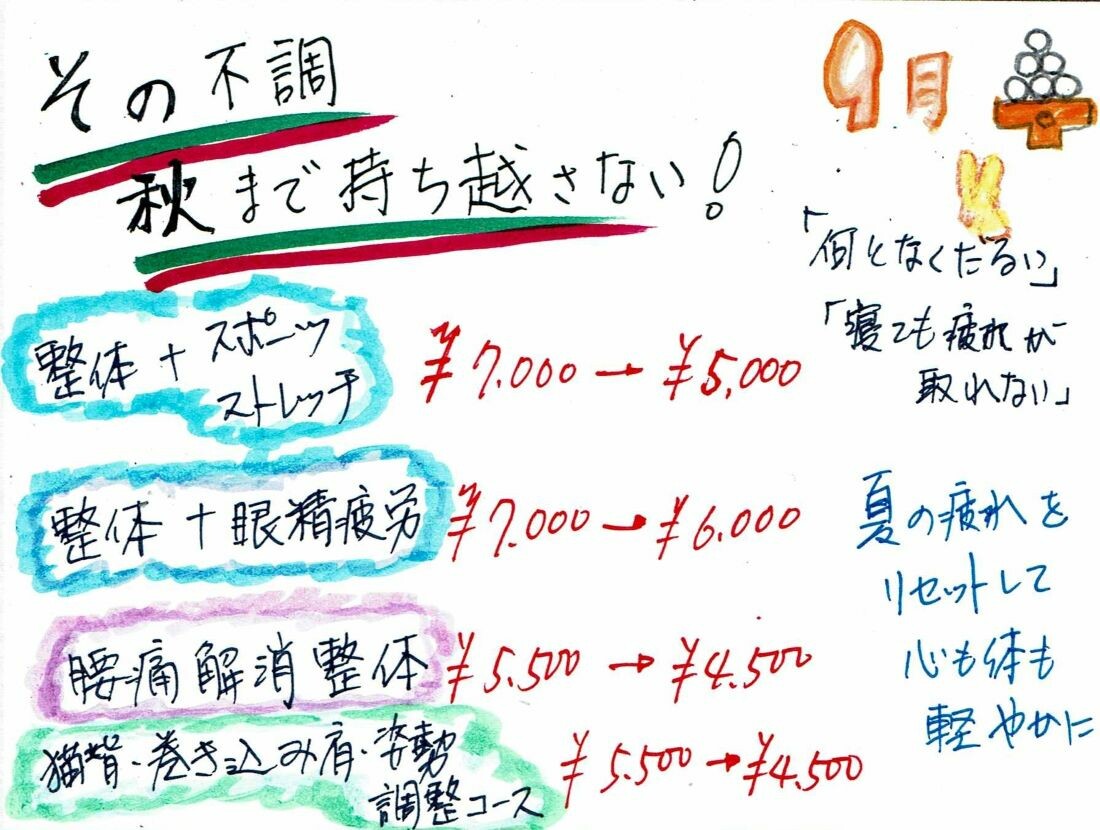 その不調
秋まで持ち越さない!
9月
「何となくだるい」
「寝ても疲れが
取れない」
整体+スポーツ
ストレッチ
¥7.000→¥5,000
整体+眼精疲労
¥7.000→¥6.000
腰痛解消整体
¥5.500→¥4.500
猫背・巻き込み肩・姿勢
調整コース
¥5.500→¥4.500
夏の疲れを
リセットして
心も体も
軽やかに